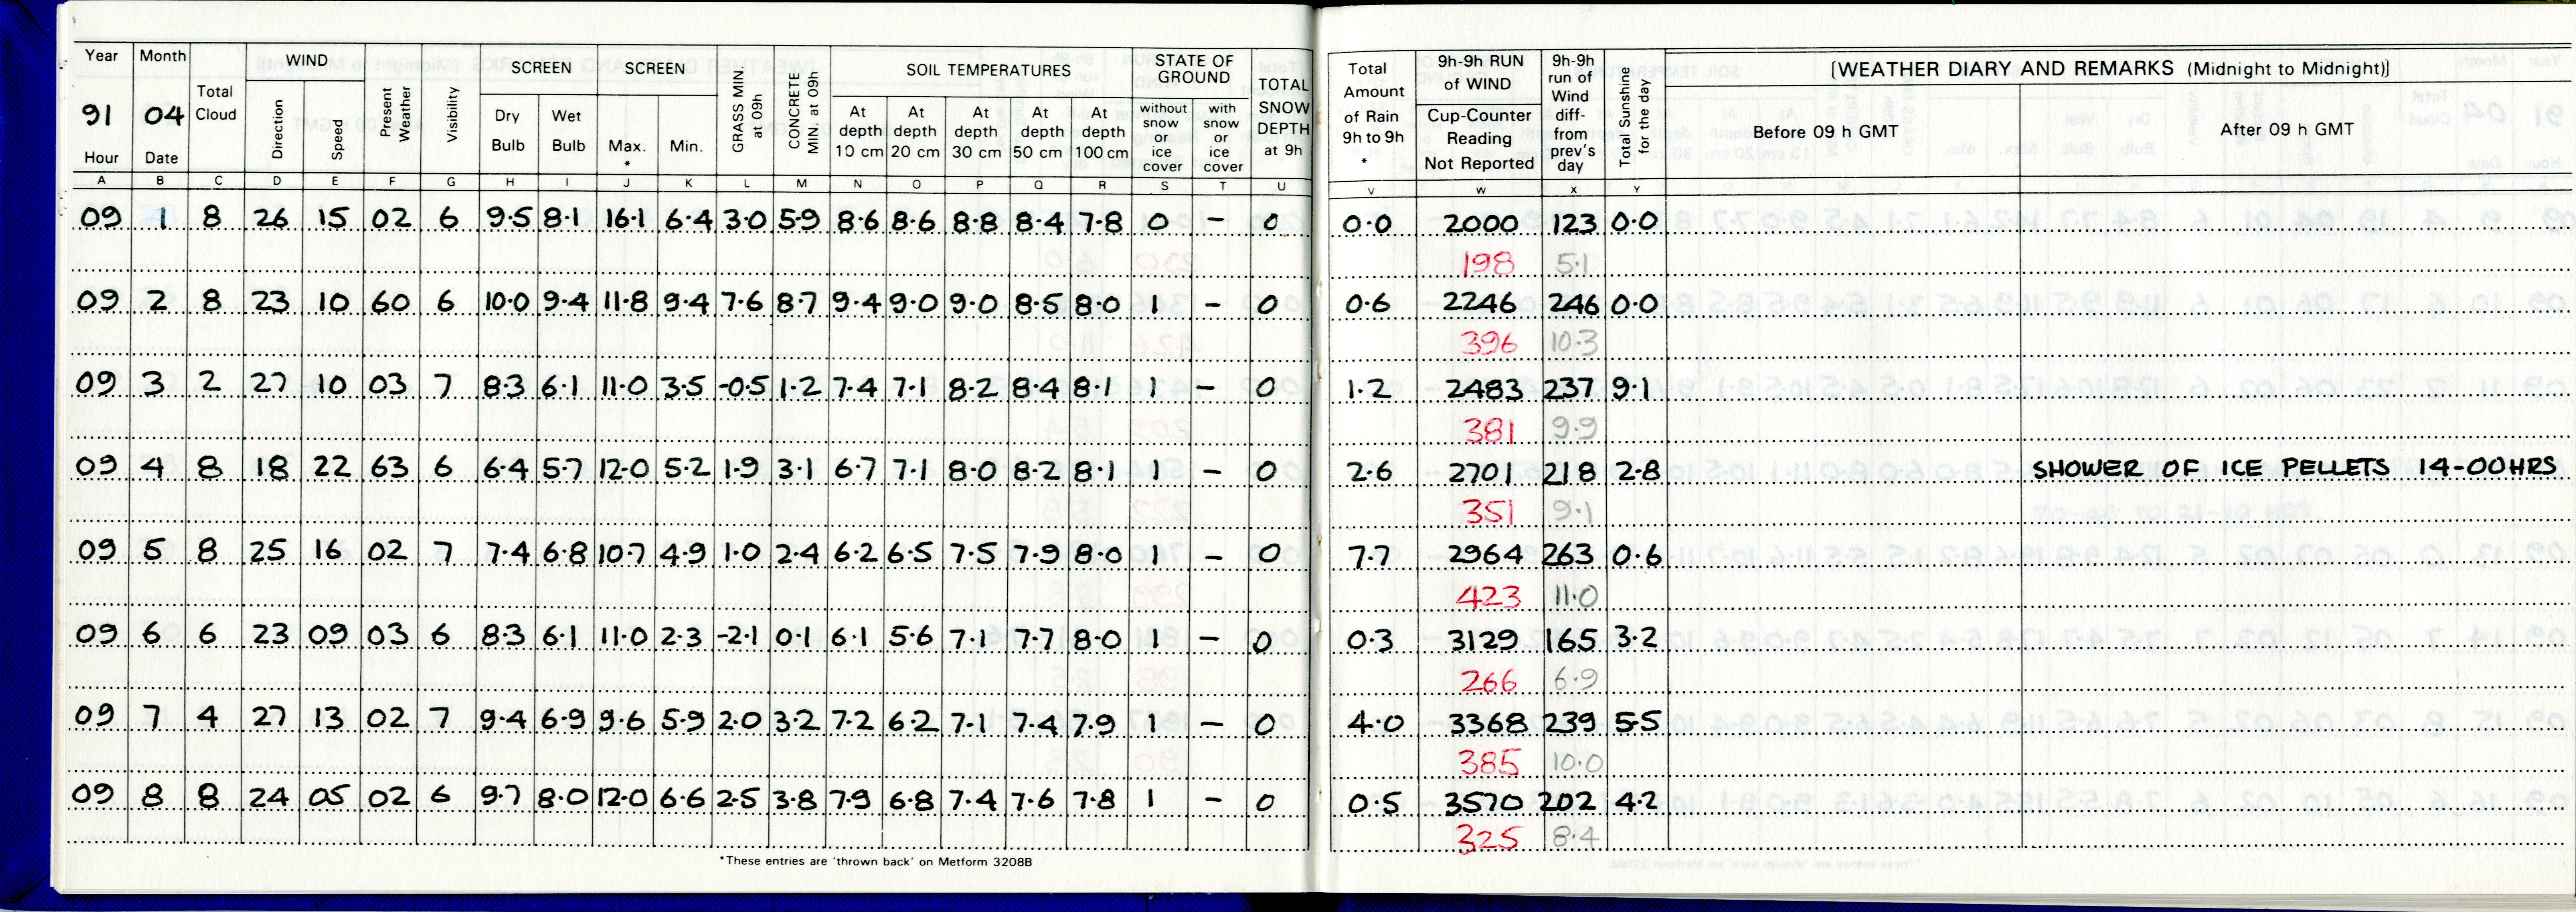 Year Month Total Cloud WIND Present Weather Visibility SCREEN SCREEN GRASS MIN. at 09h CONCRETE MIN. at 09h SOIL TEMPERATURES STATE OF GROUND TOTAL SNOW DEPTH at 9h Total Amount of Rain 9h to 9h * 9h-9h RUN of WIND 9h-9h run of Wind diff- from prev's day Total Sunshine for the day (WEATHER DIARY AND REMARKS (Midnight to Midnight))
91 04 Direction Speed Dry Bulb Wet Bulb Max. * Min. At depth 10 cm At depth 20 cm At depth 30 cm At depth 50 cm At depth 100 cm without snow or ice cover with snow or ice cover Cup-Counter Reading Not Reported Before 09 h GMT After 09 h GMT
Hour Date
A B C D E F G H I J K L M N O P Q R S T U V W X Y
09 1 8 26 15 02 6 9.5 8.1 16.1 6.4 3.0 5.9 8.6 8.6 8.8 8.4 7.8 0 - 0 0.0 2000 123 0.0
198 5.1
09 2 8 23 10 60 6 10.0 9.4 11.8 9.4 7.6 8.7 9.4 9.0 9.0 8.5 8.0 1 - 0 0.6 2246 246 0.0
396 10.3
09 3 2 27 10 03 7 8.3 6.1 11.0 3.5 -0.5 1.2 7.4 7.1 8.2 8.4 8.1 1 - 0 1.2 2483 237 9.1
381 9.9
09 4 8 18 22 63 6 6.4 5.7 12.0 5.2 1.9 3.1 6.7 7.1 8.0 8.2 8.1 1 - 0 2.6 2701 218 2.8 SHOWER OF ICE PELLETS 14-00HRS
351 9.1
09 5 8 25 16 02 7 7.4 6.8 10.7 4.9 1.0 2.4 6.2 6.5 7.5 7.9 8.0 1 - 0 7.7 2964 263 0.6
423 11.0
09 6 6 23 09 03 6 8.3 6.1 11.0 2.3 -2.1 0.1 6.1 5.6 7.1 7.7 8.0 1 - 0 0.3 3129 165 3.2
266 6.9
09 7 4 27 13 02 7 9.4 6.9 9.6 5.9 2.0 3.2 7.2 6.2 7.1 7.4 7.9 1 - 0 4.0 3368 239 5.5
385 10.0
09 8 8 24 05 02 6 9.7 8.0 12.0 6.6 2.5 3.8 7.9 6.8 7.4 7.6 7.8 1 - 0 0.5 3570 202 4.2
325 8.4
*These entries are 'thrown back' on Metform 3208B